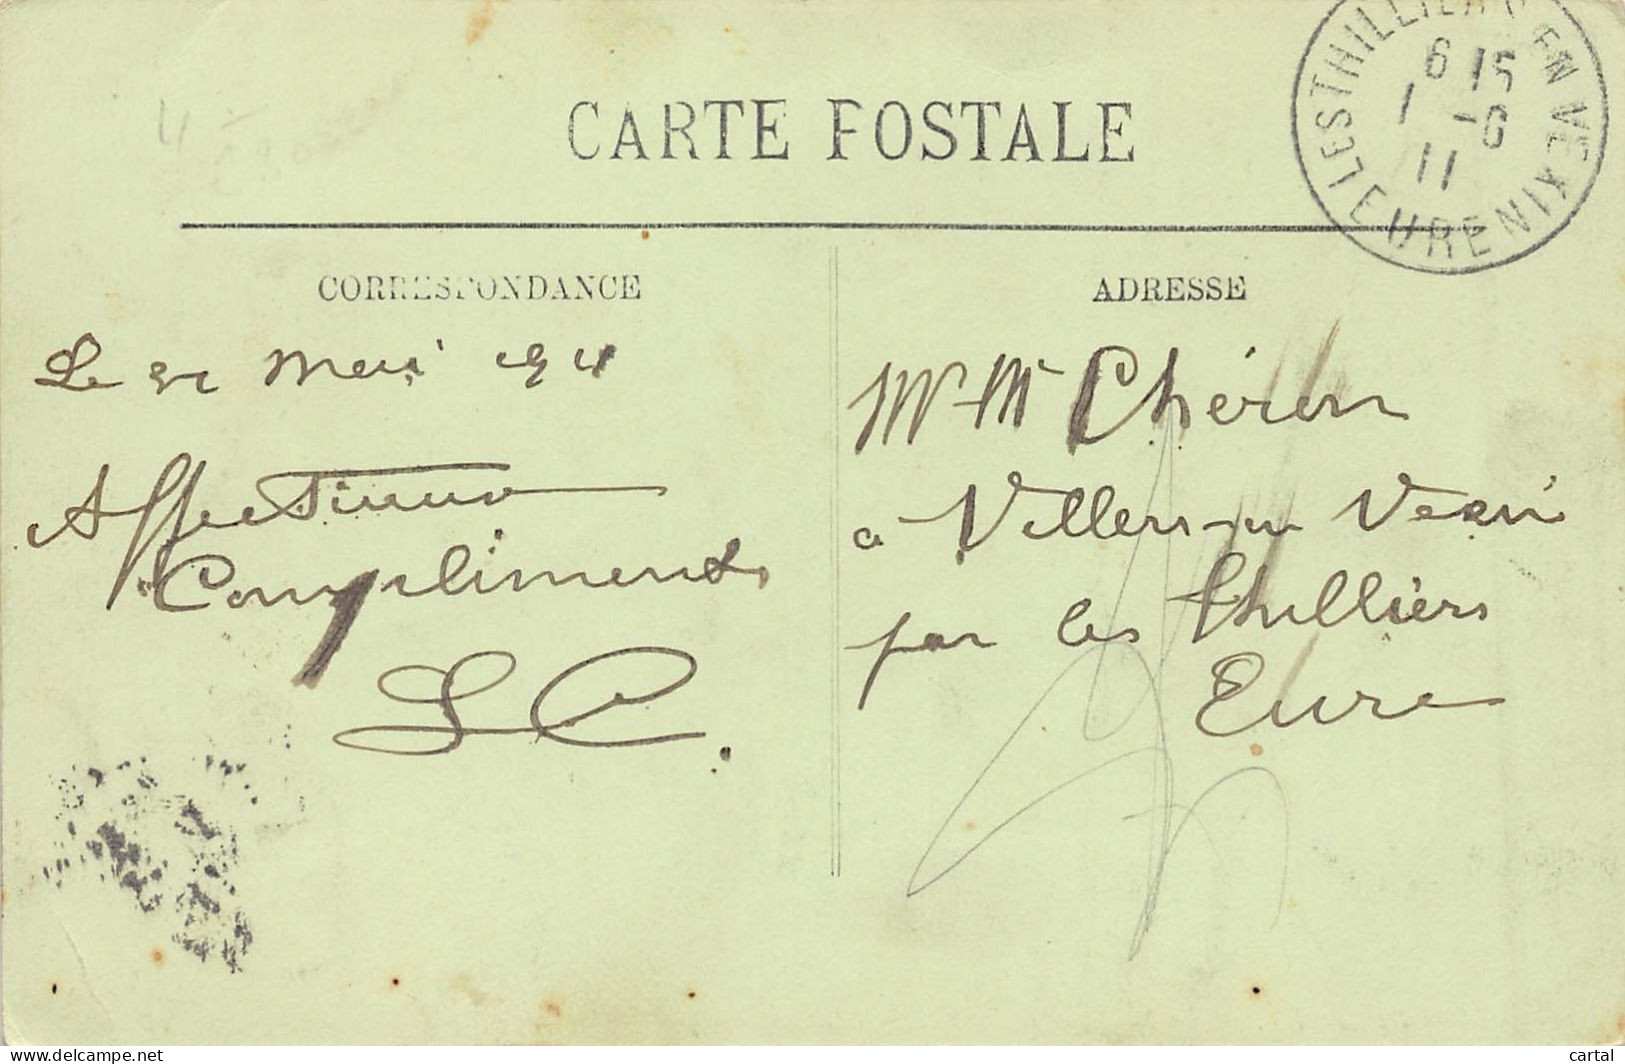 CARTE POSTALE
LES THILLIERS EN VEXIN
EURE
6 15
1 -6
11
CORRESPONDANCE
Le 31 Mai 1911
Affectueux
Compliments
L C.
ADRESSE
Mr Me Chéron
a Villers-en Vexin
par les Thilliers
Eure
www.delcampe.net
cartal